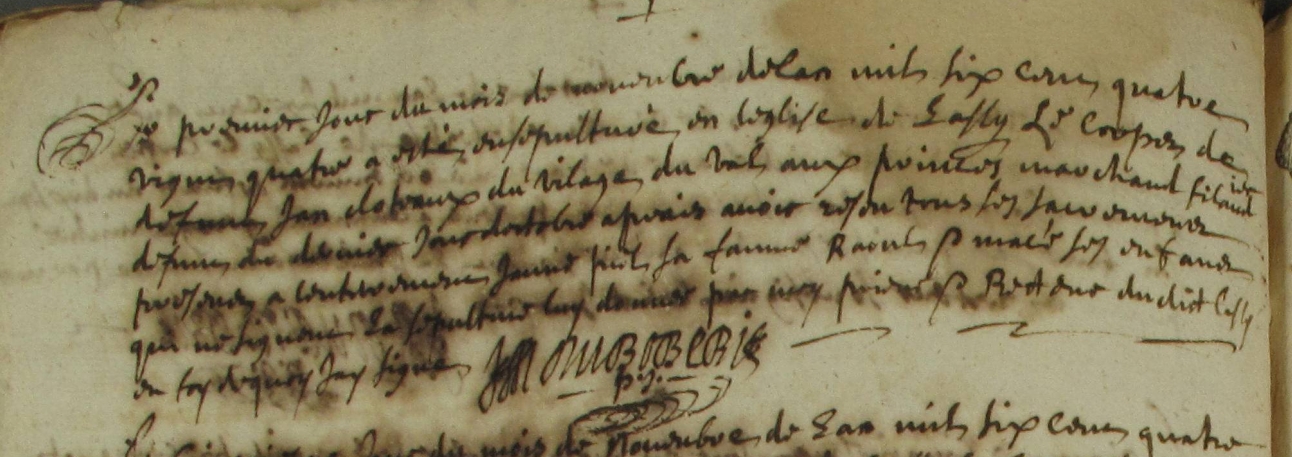 Le premier Jour du mois de novembre de lan mil six cens quatre
vigns quatre a esté ensépulturé en leglise de Lassy Le Corps de
defunct Jan du vilage du val aux marchand filand
desun du dernier Jour doctobre apres avoir resçu tous ses sacremens
presens a lenterement Janne sa famme Raoul et mace ses enfans
qui ne signent La sepulture luy donnée par moy prieur et Recteur dudict Lassy
en foy dequoy Jay signé
p. r.
Jour du mois de Novembre de Lan mil six cens quatre